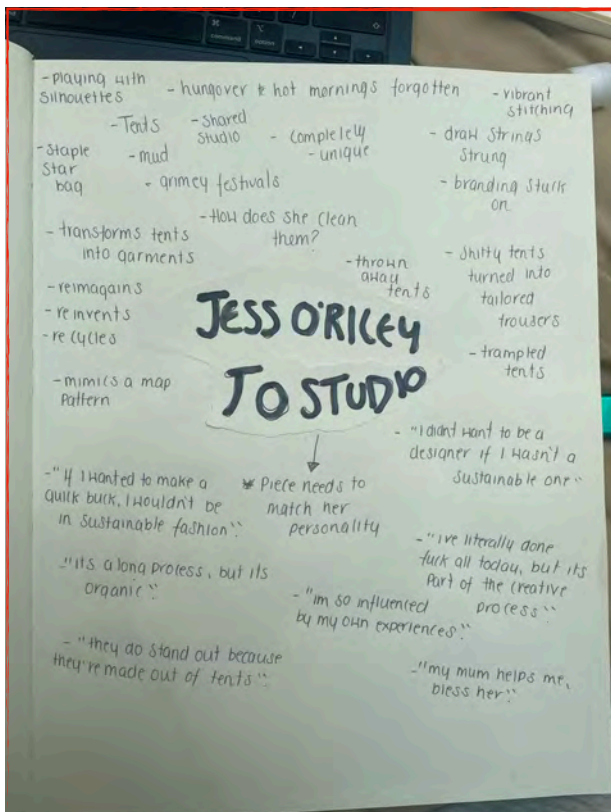 command
option
- playing with
silhouettes
- hungover & hot mornings forgotten
- vibrant
stitching
- Tents
- shared
studio
- completely
- unique
- draw strings
strung
- staple
star
bag
- mud
- grimey festivals
- branding stuck
on
- How does she clean
them?
- transforms tents
into garments
- thrown
away
tents
- shitty tents
turned into
tailored
trousers
- reimagains
- reinvents
- recycles
JESS O'RILEY
JO STUDIO
- trampled
tents
- mimics a map
pattern
- "I didnt want to be a
designer if I wasn't a
sustainable one"
- "if I wanted to make a
quick buck, I wouldn't be
in sustainable fashion"
* Piece needs to
match her
personality
- "ive literally done
fuck all today, but its
part of the creative
process"
- "its a long process, but its
organic"
- "im so influenced
by my own experiences"
- "they do stand out because
they're made out of tents"
- "my mum helps me,
bless her"